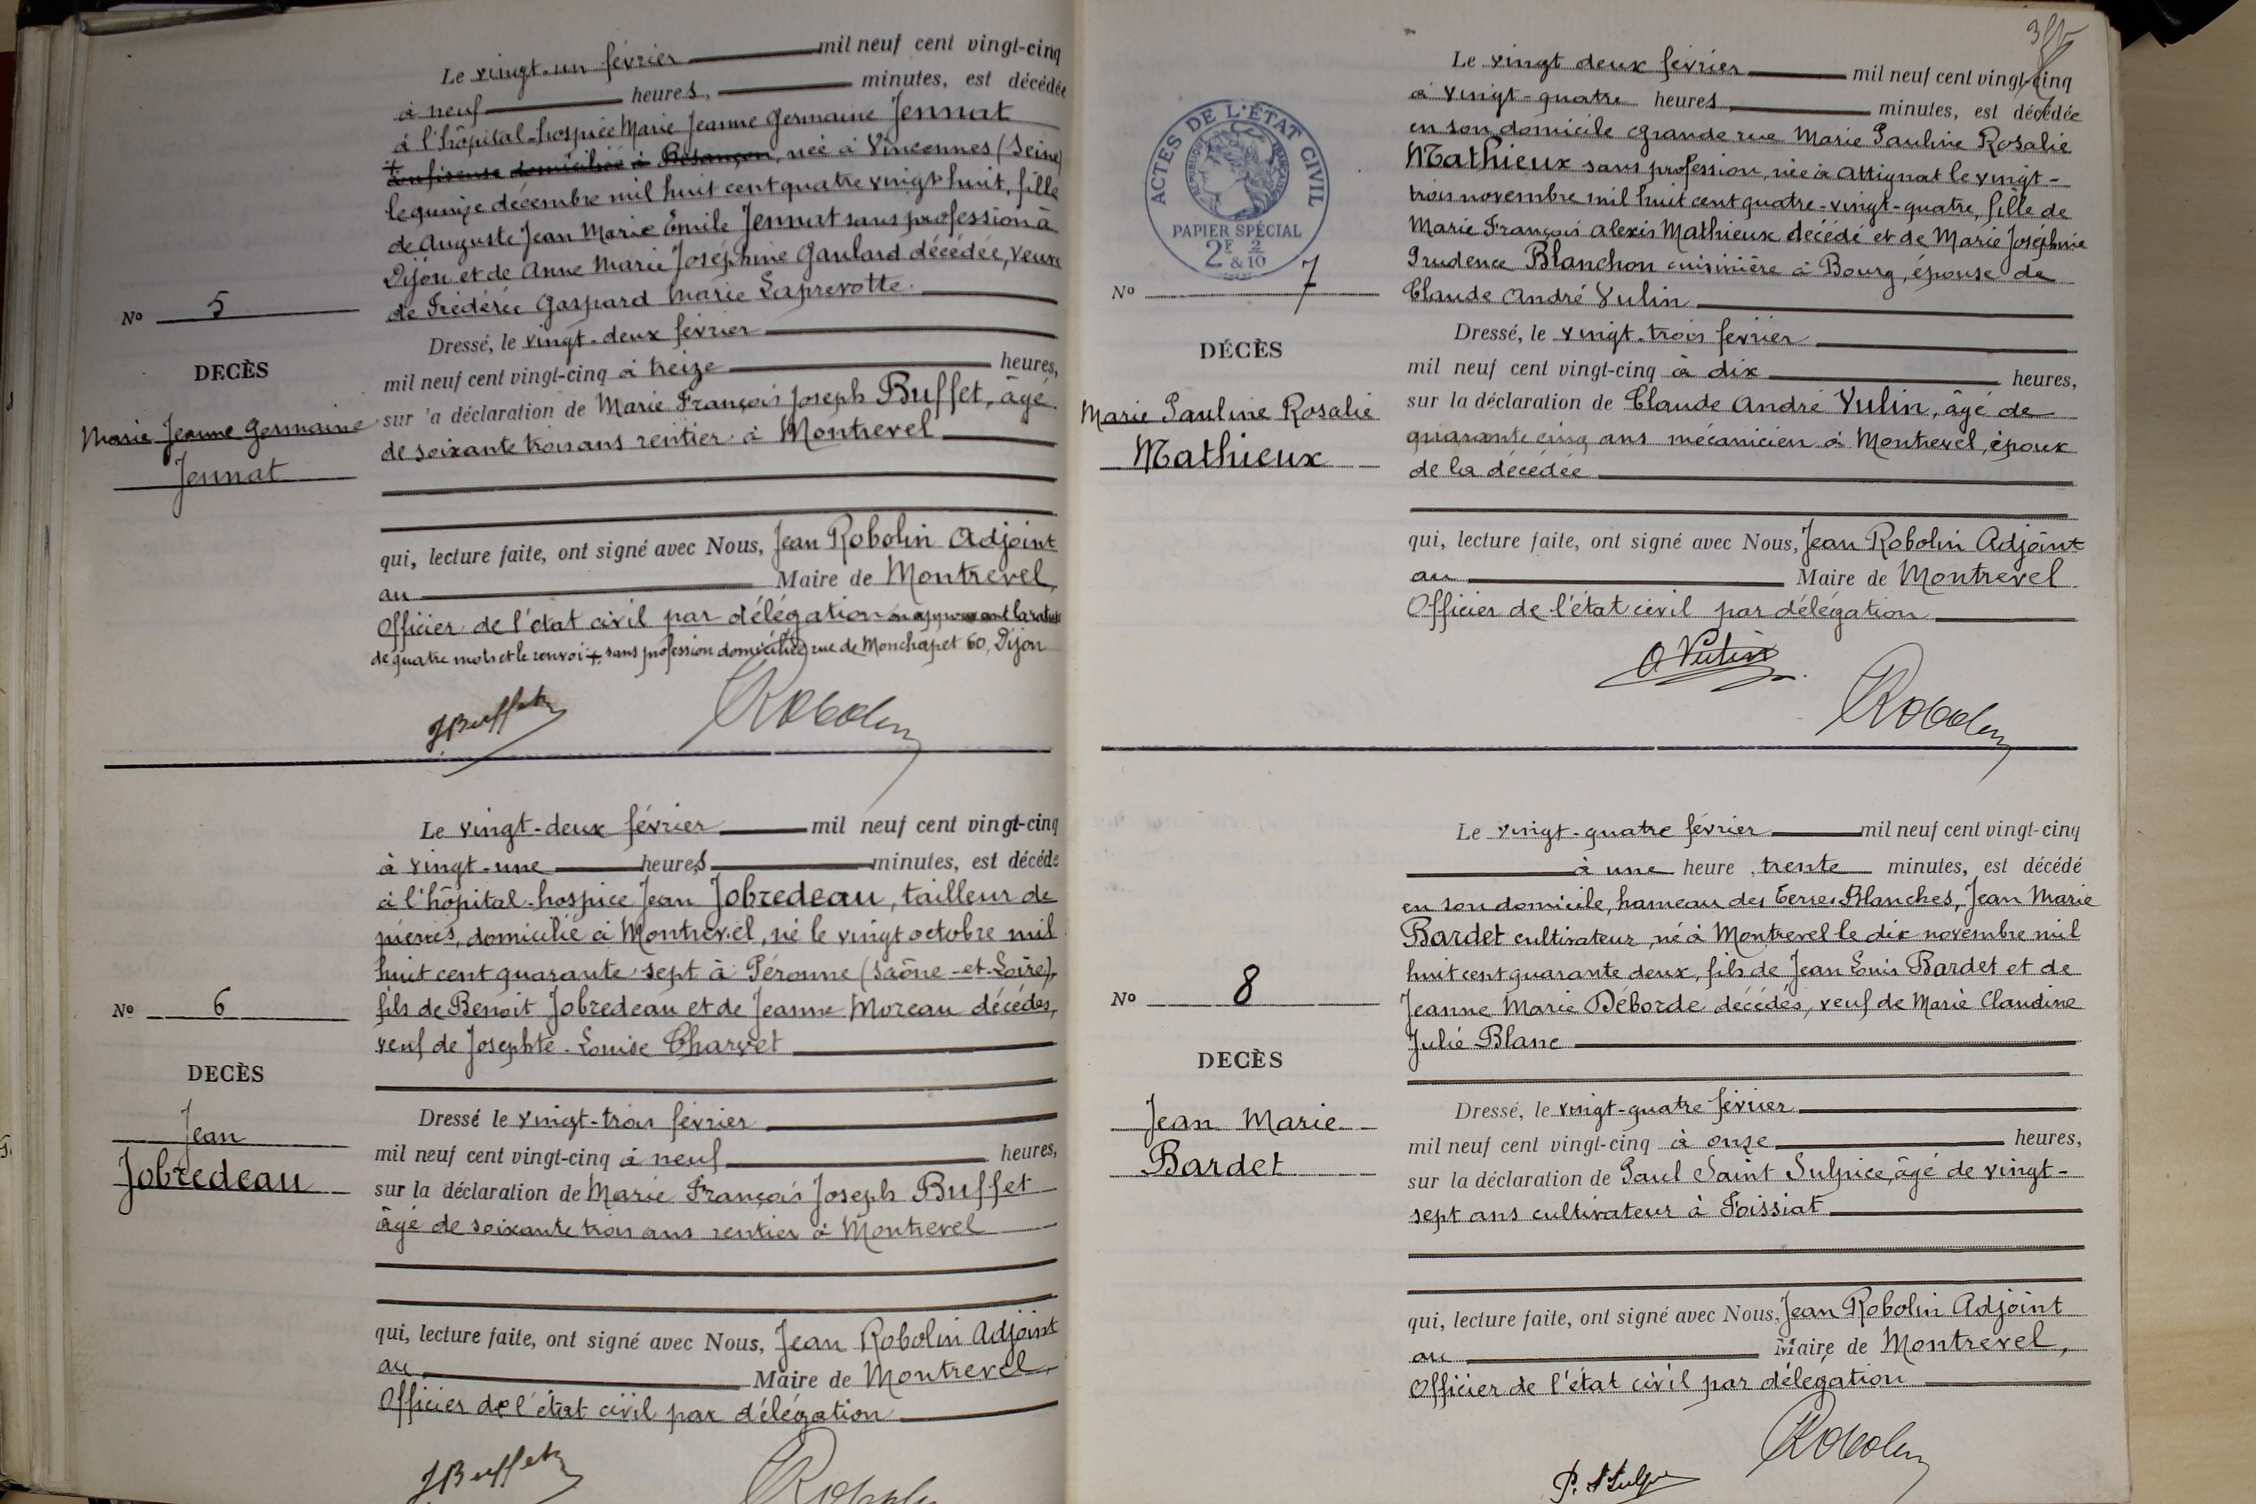 Le vingt-un février mil neuf cent vingt-cinq
à neuf heures, minutes, est décédée
à l'hôpital-hospice Marie Jeanne Germaine Jennat
+ domiciliée à Besançon, née à Vincennes (Seine)
le quinze décembre mil huit cent quatre vingt huit, fille
de Auguste Jean Marie Emile Jennat sans profession à
Dijon et de Anne Marie Joséphine Gaulard décédée, veuve
de Frédéric Gaspard Marie Laprevotte.
No 5
DECÈS
Marie Jeanne Germaine
Jennat
Dressé, le vingt-deux février
mil neuf cent vingt-cinq à treize heures,
sur 'a déclaration de Marie François Joseph Buffet, âgé
de soixante trois ans rentier à Montrevel
qui, lecture faite, ont signé avec Nous, Jean Robolin Adjoint
au Maire de Montrevel,
Officier de l'état civil par délégation en approuvant la rature
de quatre mots et le renvoi +, sans profession domiciliée rue de Monchapet 60, Dijon
JBuffet Robolin
Le vingt-deux février mil neuf cent vingt-cinq
à vingt-une heures minutes, est décédé
à l'hôpital-hospice Jean Jobredeau, tailleur de
pierres, domicilié à Montrevel, né le vingt octobre mil
huit cent quarante-sept à Péronne (Saône-et-Loire),
fils de Benoit Jobredeau et de Jeanne Moreau décédés,
veuf de Josephte-Louise Charvet
No 6
DECÈS
Jean
Jobredeau
Dressé le vingt-trois février
mil neuf cent vingt-cinq à neuf heures,
sur la déclaration de Marie François Joseph Buffet
âgé de soixante trois ans rentier à Montrevel
qui, lecture faite, ont signé avec Nous, Jean Robolin Adjoint
au Maire de Montrevel,
Officier de l'état civil par délégation
JBuffet Robolin
Le vingt deux février mil neuf cent vingt-cinq
à vingt-quatre heures minutes, est décédée
en son domicile Grande rue Marie Pauline Rosalie
Mathieux sans profession, née à Attignat le vingt-
trois novembre mil huit cent quatre-vingt-quatre, fille de
Marie François Alexis Mathieux décédé et de Marie Joséphine
Prudence Blanchon cuisinière à Bourg, épouse de
Claude André Vulin
ACTES DE L'ÉTAT CIVIL
PAPIER SPÉCIAL
2F & 2/10
No 7
DÉCÈS
Marie Pauline Rosalie
Mathieux
Dressé, le vingt-trois février
mil neuf cent vingt-cinq à dix heures,
sur la déclaration de Claude André Vulin, âgé de
quarante cinq ans mécanicien à Montrevel, époux
de la décédée
qui, lecture faite, ont signé avec Nous, Jean Robolin Adjoint
au Maire de Montrevel
Officier de l'état civil par délégation
A Vulin
Robolin
Le vingt-quatre février mil neuf cent vingt-cinq
à une heure, trente minutes, est décédé
en son domicile, hameau des Terres Blanches, Jean Marie
Bardet cultivateur, né à Montrevel le dix novembre mil
huit cent quarante deux, fils de Jean Louis Bardet et de
Jeanne Marie Déborde décédés, veuf de Marie Claudine
Julie Blanc
No 8
DECÈS
Jean Marie
Bardet
Dressé, le vingt-quatre février
mil neuf cent vingt-cinq à onze heures,
sur la déclaration de Paul Saint Sulpice, âgé de vingt-
sept ans cultivateur à Foissiat
qui, lecture faite, ont signé avec Nous, Jean Robolin Adjoint
au Maire de Montrevel,
Officier de l'état civil par délégation
Robolin